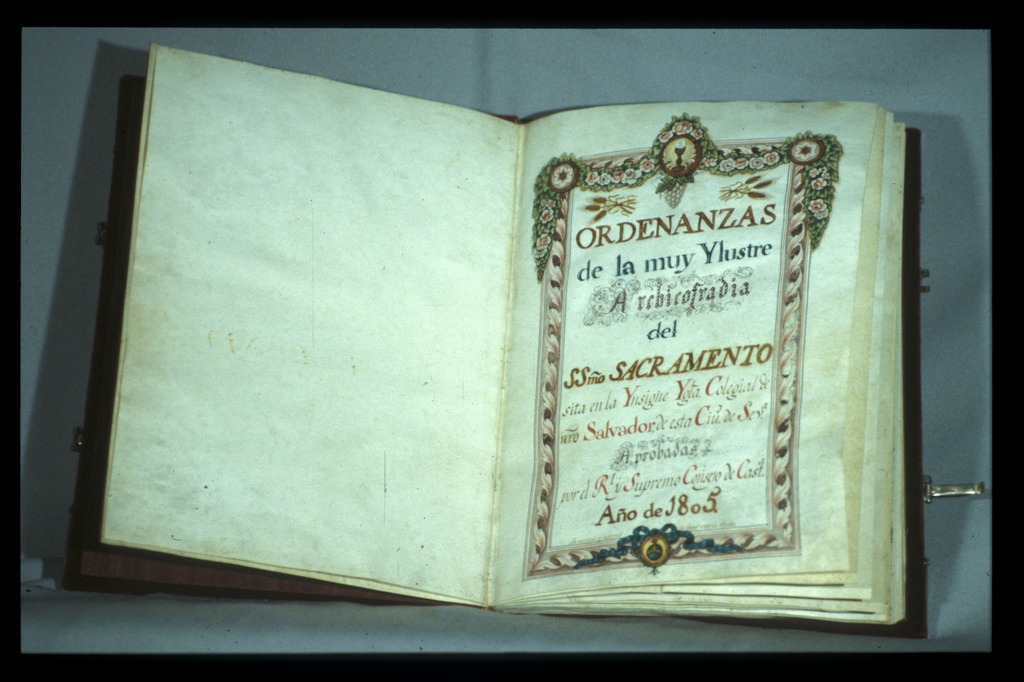 ORDENANZAS
de la muy Ylustre
Archicofradia
del
SSmo SACRAMENTO
sita en la Ynsigne Ygta. Colegial de
nro Salvador, de esta Ciu. de Sevª
Aprobadas
por el Rl. y Supremo Consejo de Castª.
Año de 1805.